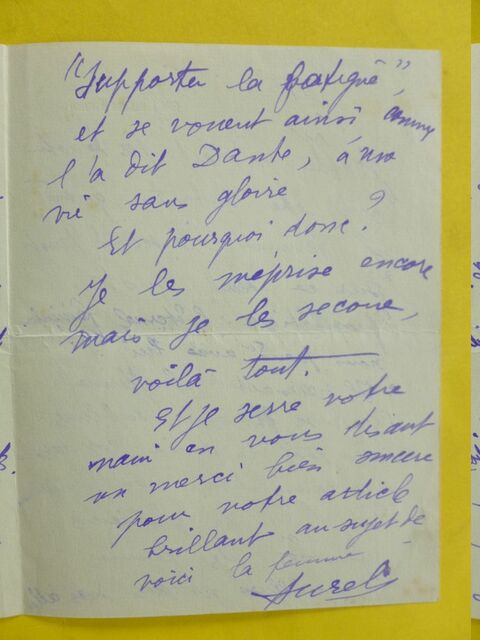 "Supporter la fatigue",
et se vouent ainsi, comme
l'a dit Dante, à une
vie sans gloire
Et pourquoi donc?
Je les méprise encore
mais je les secoue,
voilà tout.
Et je serre votre
main en vous disant
un merci bien sincère
pour votre article
brillant au sujet de
voici la femme
Aurel